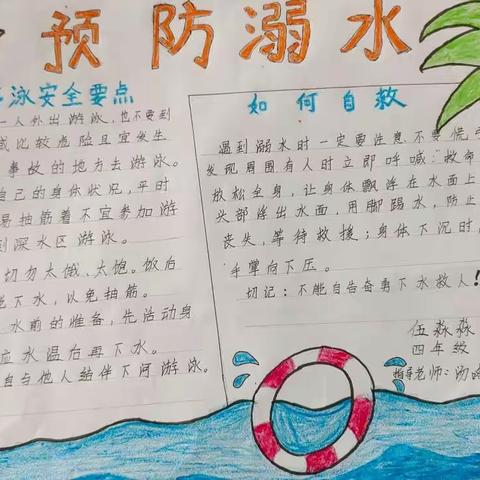 预防溺水
泳安全要点
一人外出游泳,也不要到
或比较危险且宜发生
事故的地方去游泳。
自己的身体状况,平时
易抽筋着不宜参加游
到深水区游泳。
切勿太饿、太饱。饭后
下水,以免抽筋。
水前的准备,先活动身
应水温后再下水。
自与他人结伴下河游泳。
如何自救
遇到溺水时一定要注意不要慌
发现周围有人时立即呼喊:救命
放松全身,让身体飘浮在水面上
头部浮出水面,用脚踢水,防止
丧失,等待救援;身体下沉时,
手掌向下压。
切记:不能自告奋勇下水救人!
伍淼淼
四年级
指导老师:汤